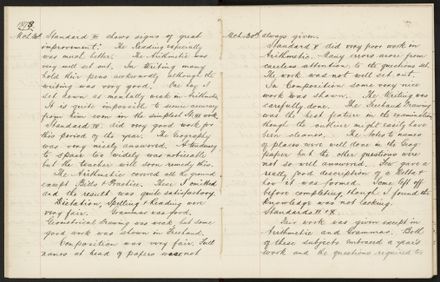 1908.
Oct. 30th Standard III shows signs of great
improvement. The Reading especially
was much better. The Arithmetic was
very well set out. In Writing many
hold their pens awkwardly although the
writing was very good. One boy is
set down as mentally weak in Arithmetic
It is quite impossible to secure accuracy
from him even in the simplest work
Standard IV did very good work for
this period of the year. The Geography
was very nicely answered. A tendency
to space too widely was noticeable
but the teacher will soon remedy this.
The Arithmetic covered all the ground
except Bills & Practice. These I omitted
and the result was quite satisfactory.
Dictation, Spelling & Reading were
very fair. Grammar was good.
Geometrical Drawing was weak but some
good work was shown in Freehand.
Composition was very fair. Full
names at head of papers was not
Oct. 30th always given.
Standard V did very poor work in
Arithmetic. Many errors arose from
careless attention to the questions set
The work was not well set out.
In Composition some very nice
work was shown. The Writing was
carefully done. The Freehand Drawing
was the best feature in the examination
though the outlines might easily have
been cleaner. The Jobs to names
of places were well done in the Geog.
paper but the other questions were
not so well answered. Few gave a
really good description of a Delta &
how it was formed. Some left off
before completing though I found the
knowledge was not lacking.
Standards VI & X.
Fair work was given except in
Arithmetic and Grammar. Both
of these subjects embraced a year's
work and the questions required to